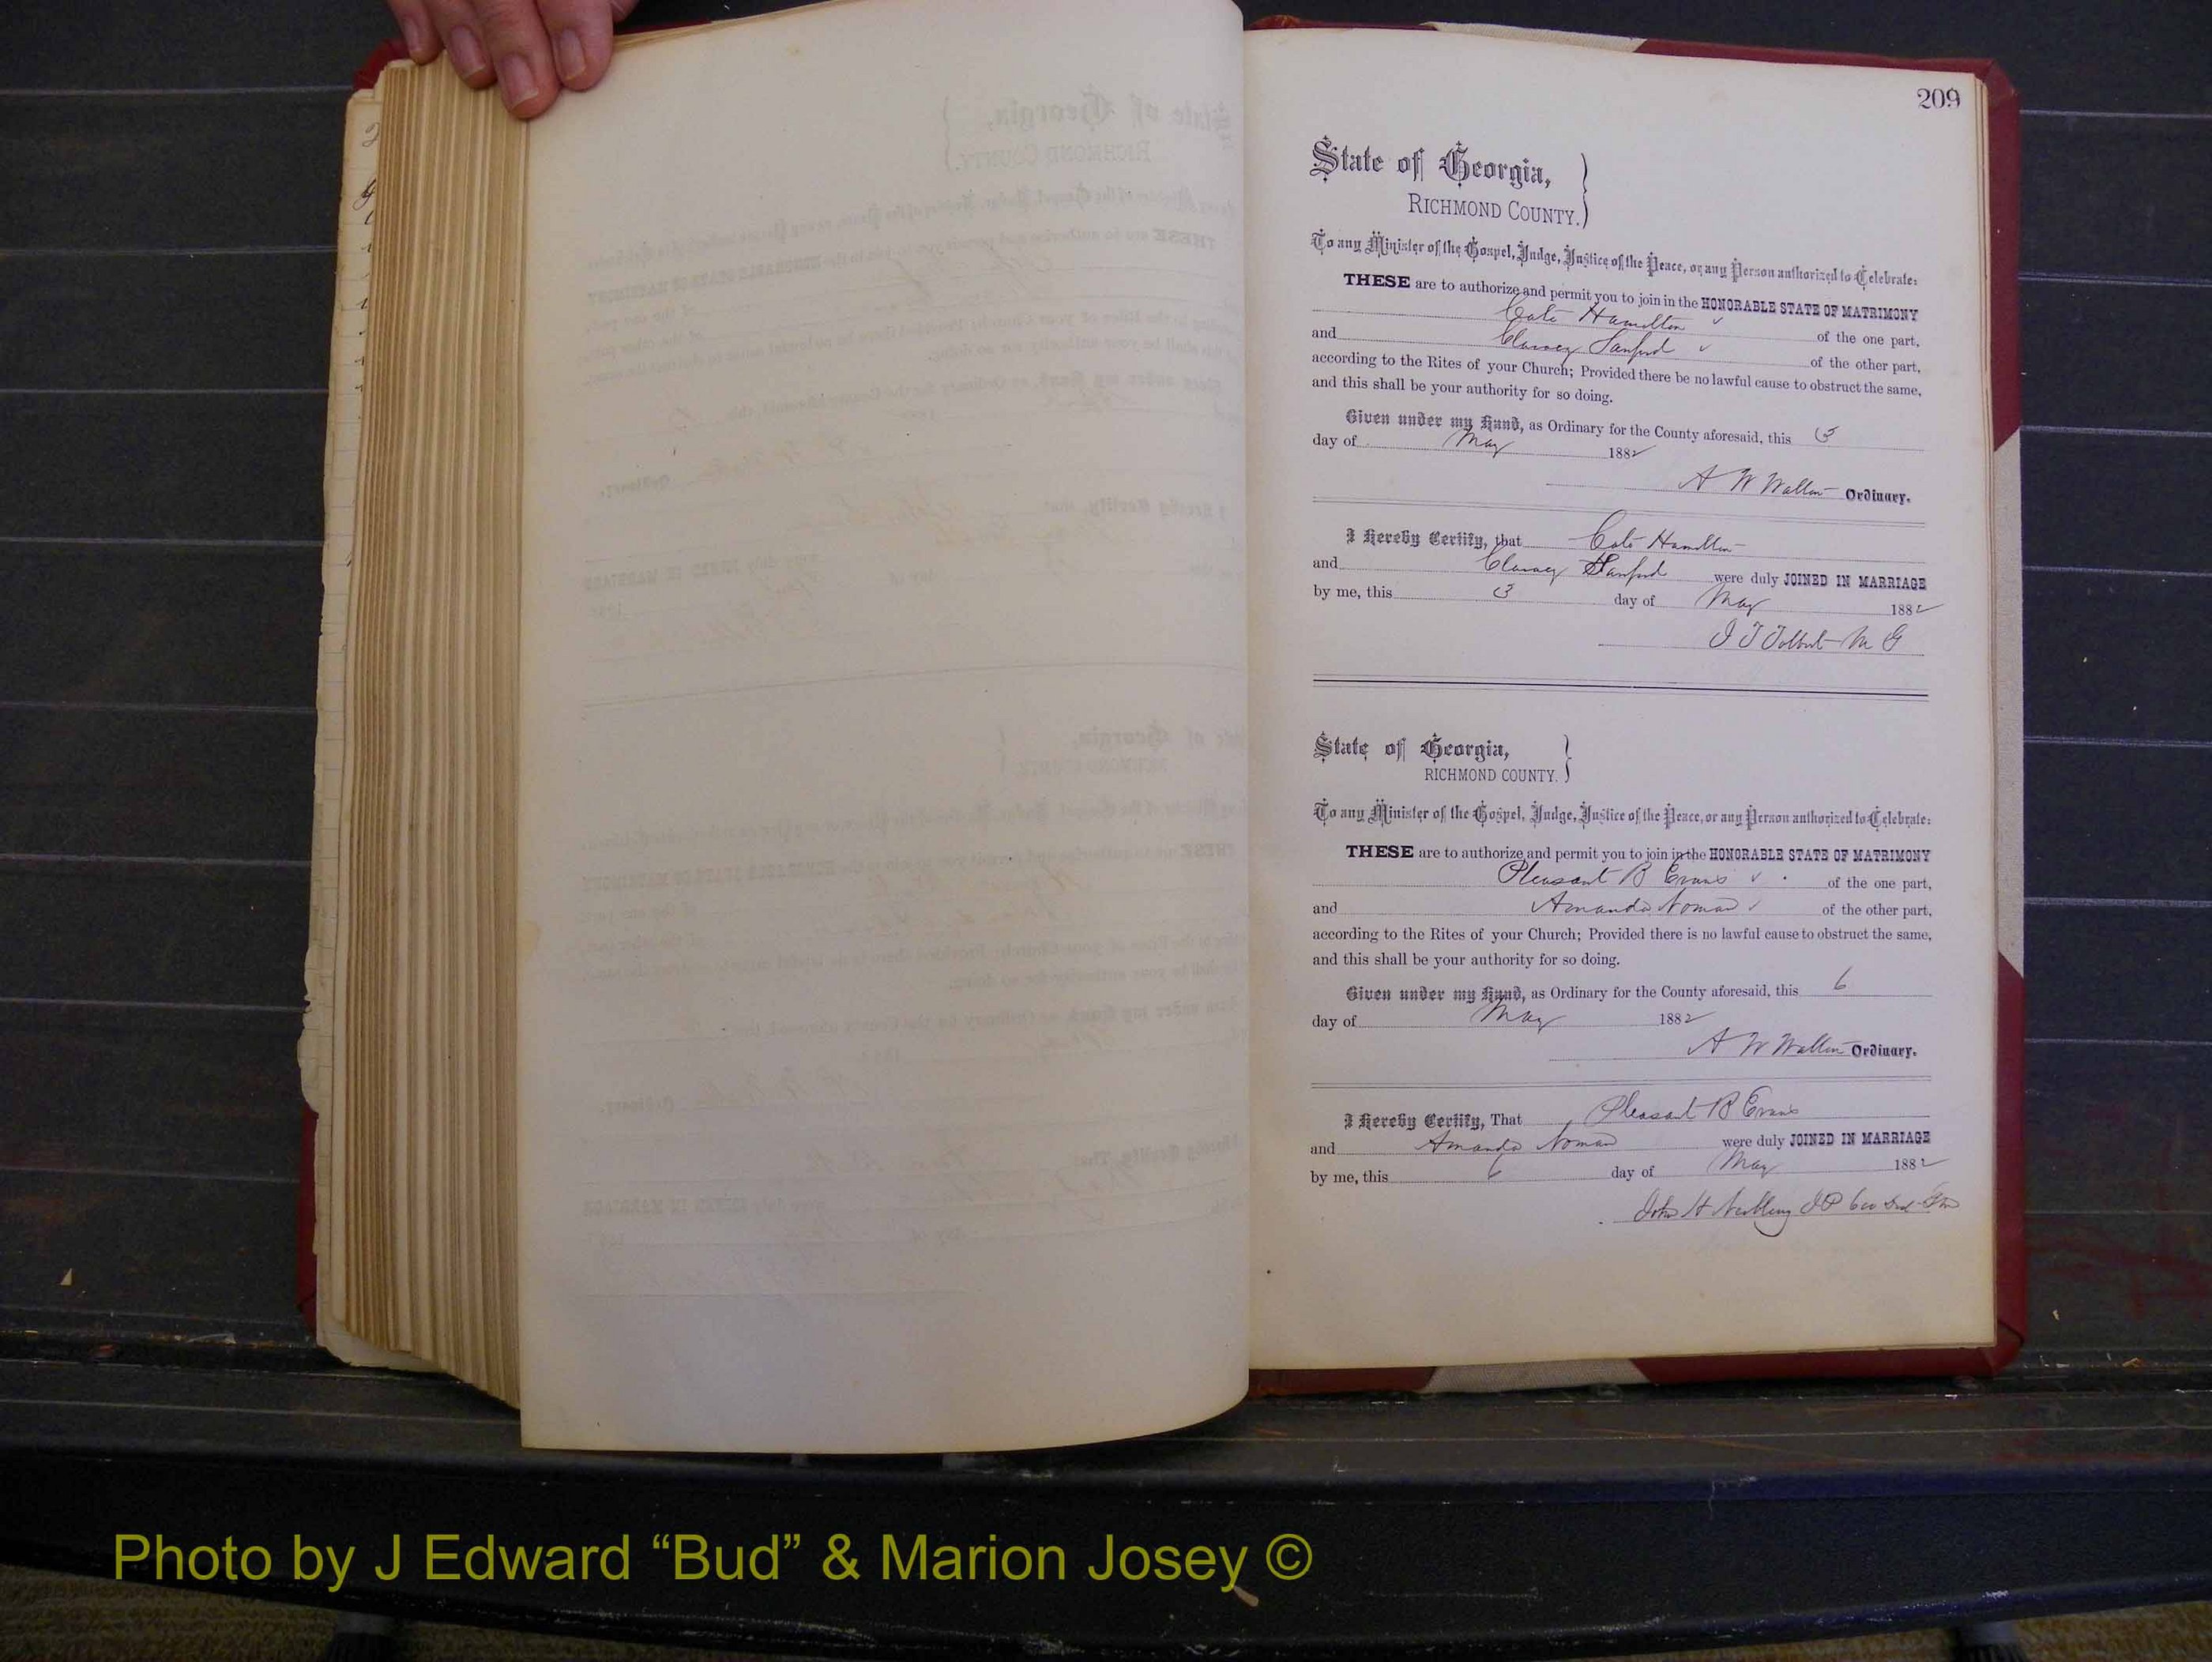 209
State of Georgia,
RICHMOND COUNTY.
To any Minister of the Gospel, Judge, Justice of the Peace, or any Person authorized to Celebrate:
THESE are to authorize and permit you to join in the HONORABLE STATE OF MATRIMONY
Cato Hamilton of the one part,
and Sanford of the other part,
according to the Rites of your Church; Provided there be no lawful cause to obstruct the same,
and this shall be your authority for so doing.
Given under my Hand, as Ordinary for the County aforesaid, this 3
day of May 1882
A W Walton Ordinary.
I Hereby Certify, that Cato Hamilton
and Sanford were duly JOINED IN MARRIAGE
by me, this 3 day of May 1882
J T Tolbert M G
State of Georgia,
RICHMOND COUNTY.
To any Minister of the Gospel, Judge, Justice of the Peace, or any Person authorized to Celebrate:
THESE are to authorize and permit you to join in the HONORABLE STATE OF MATRIMONY
Pleasant B Evans of the one part,
and Amanda Noman of the other part,
according to the Rites of your Church; Provided there is no lawful cause to obstruct the same,
and this shall be your authority for so doing.
Given under my Hand, as Ordinary for the County aforesaid, this 6
day of May 1882
A W Walton Ordinary.
I Hereby Certify, That Pleasant B Evans
and Amanda Noman were duly JOINED IN MARRIAGE
by me, this 6 day of May 1882
John H JP 600
Photo by J Edward “Bud” & Marion Josey ©